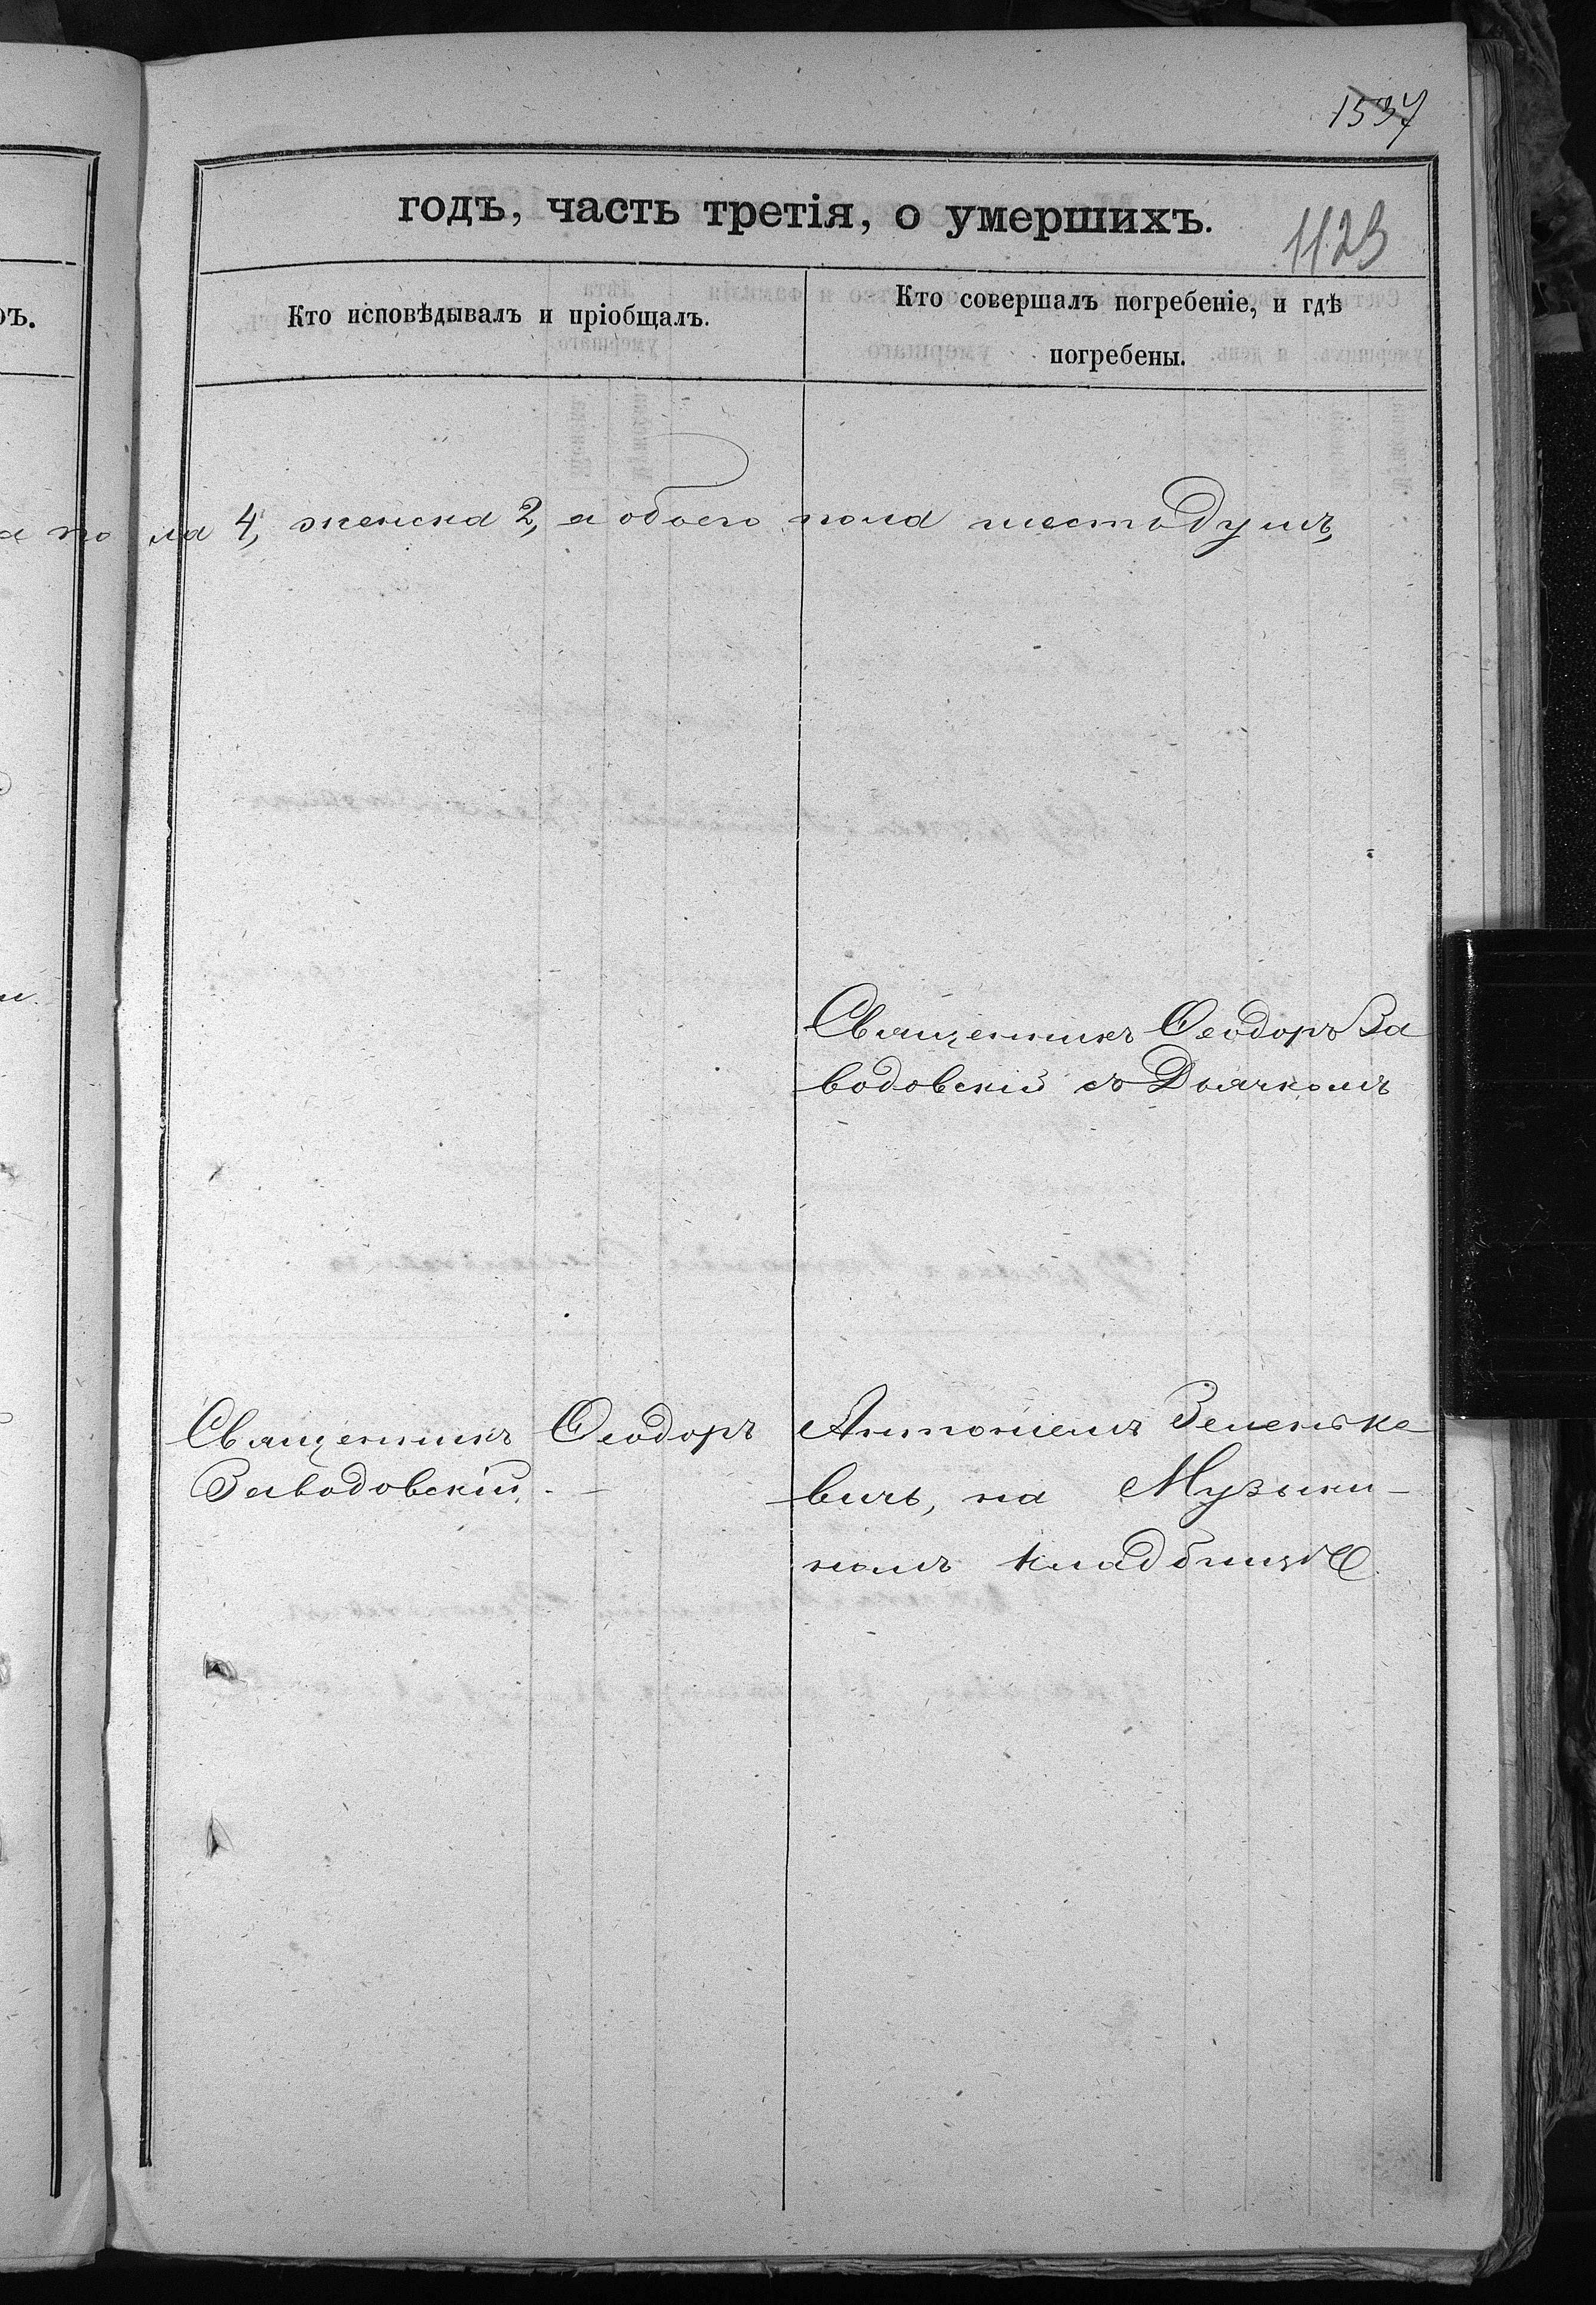 1537
годъ, часть третія, о умершихъ.
1123
Кто исповѣдывалъ и пріобщалъ.
Кто совершалъ погребеніе, и гдѣ
погребены.
ла 4, женска 2, а обоего пола шесть душъ,
Священникъ Ѳеодоръ За
водовскій съ Дьячкомъ
Священникъ Ѳеодоръ
Заводовскій. —
Антоніемъ Зеленьке
вичъ, на Музыки-
номъ кладбищѣ